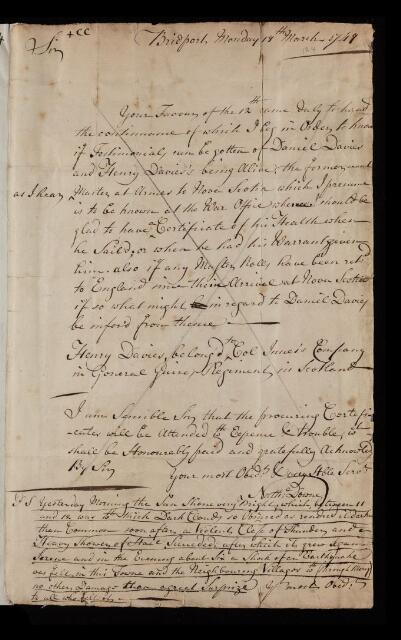 +CC
Sir
Bridport, Monday 18th March 1748
Your Favour of the 12th came duly to hand
the continuance of which I beg in Order to know
if Testimonials can be gotten of Daniel Davies
and Henry Davies's being Alive, the former went
as I hear
Master at Armes to Nova Scotia which I presume
is to be known at the War Office where I should be
glad to have a Certificate of his Health when
he Saild, or when he had his Warrant given
him. also if any Muster Roles have been retd
to England since their Arrival at Nova Scotia
if so what might be in regard to Daniel Davies
be inford from thence
Henry Davies, belongd to Col Innes's Company
in General Regiment, in Scotland
I am Sensible Sir that the procuring Certifi-
cates will be Attended wth Expence & trouble, wch
shall be Honourably paid and gratefully Acknowledgd
By Sir
Your most Obedt & very Hble Servt
Nathl Downe
PS Yesterday Morning the Sun Shone very bright which between 11
and 12 was to thick Dark Clouds
soon after a Violent Clap of Thunder and a
Heavy Shower of Hail Succeeded, after which it grew Again
Serene and in the Evening about Six a Shock of an Earthquake
was felt in this Towne and the Neighbouring Villages
no other Damage than a great Surprize
to all who felt it.
yr most Obedt